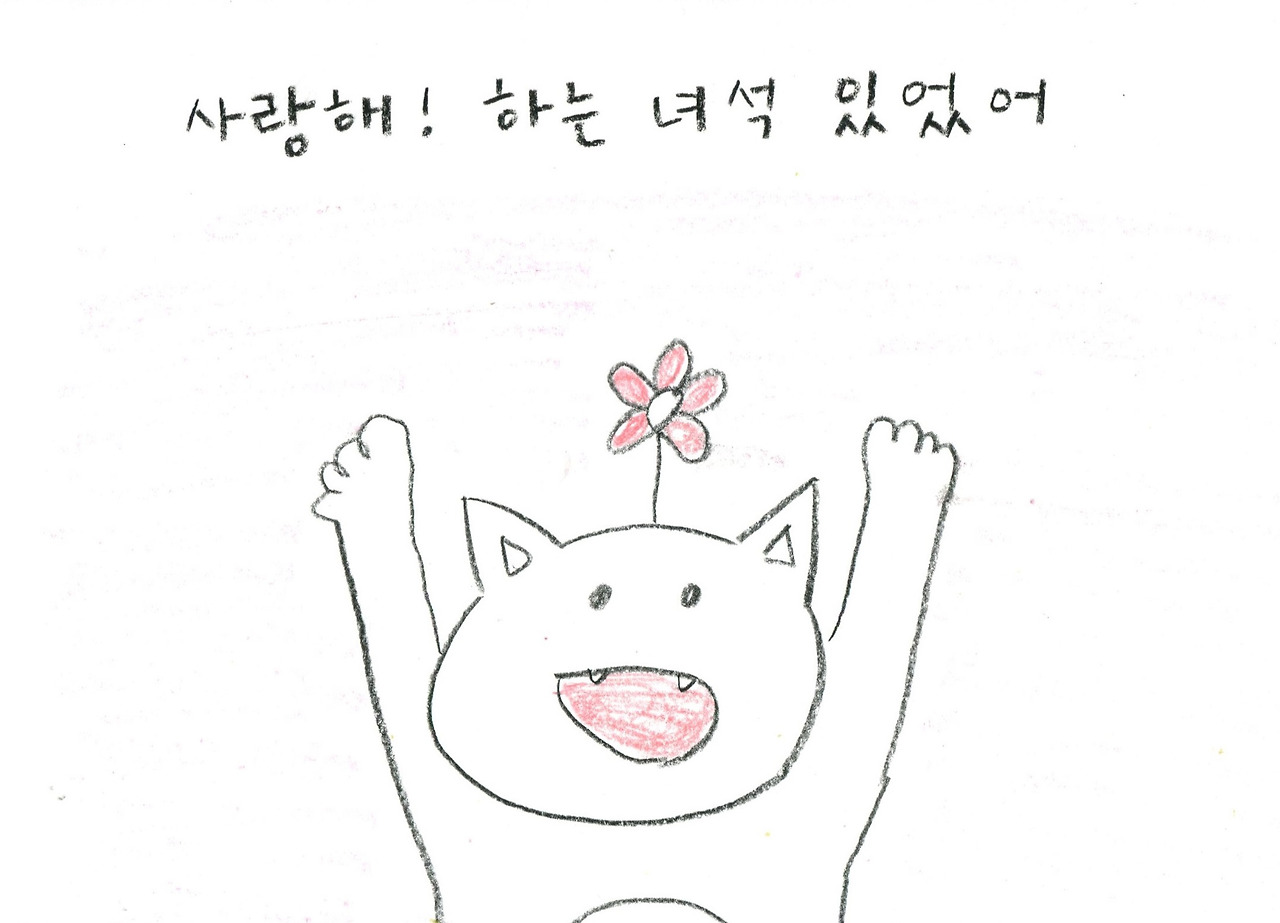 사랑해! 하는 녀석 있었어